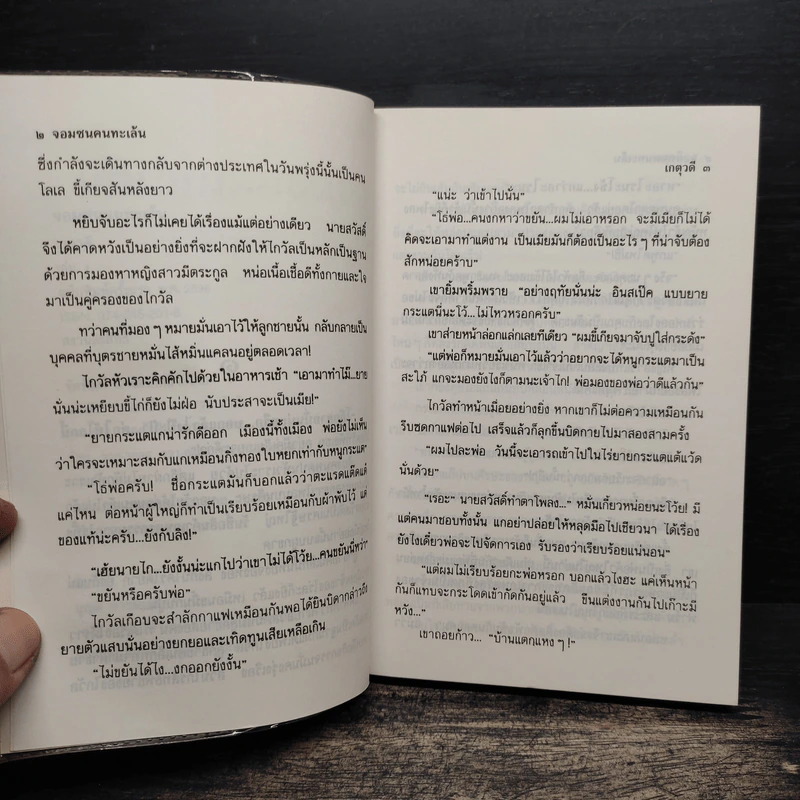 ๒ จอมซนคนทะเล้น
ซึ่งกำลังจะเดินทางกลับจากต่างประเทศในวันพรุ่งนี้นั้นเป็นคน
โลเล ขี้เกียจสันหลังยาว
หยิบจับอะไรก็ไม่เคยได้เรื่องแม้แต่อย่างเดียว นายสวัสดิ์
จึงได้คาดหวังเป็นอย่างยิ่งที่จะฝากฝังให้ไกวัลเป็นหลักเป็นฐาน
ด้วยการมองหาหญิงสาวมีตระกูล หน่อเนื้อเชื้อดีทั้งกายและใจ
มาเป็นคู่ครองของไกวัล
ทว่าคนที่มอง ๆ หมายมั่นเอาไว้ให้ลูกชายนั้น กลับกลายเป็น
บุคคลที่บุตรชายหมั่นไส้หมิ่นแคลนอยู่ตลอดเวลา!
ไกวัลหัวเราะคิกคักไปด้วยในอาหารเช้า “เอามาทำไม้...ยาย
นั่นน่ะเหยียบขี้ไก่ก็ยังไม่ฝ่อ นับประสาจะเป็นเมีย!”
“ยายกระแตแกน่ารักดีออก เมืองนี้ทั้งเมือง พ่อยังไม่เห็น
ว่าใครจะเหมาะสมกับแกเหมือนกิ่งทองใบหยกเท่ากับหนูกระแต”
“โธ่พ่อครับ! ชื่อกระแตมันก็บอกแล้วว่าตะแรดแต๊ดแต๋
แค่ไหน ต่อหน้าผู้ใหญ่ก็ทำเป็นเรียบร้อยเหมือนกับผ้าพับไว้ แต่
ของแท้น่ะครับ...ยังกับลิง!”
“เฮ้ยนายไก...ยังงั้นน่ะแกไปว่าเขาไม่ได้โว้ย...คนขยันนี่หว่า”
“ขยันหรือครับพ่อ”
ไกวัลเกือบจะสำลักกาแฟเหมือนกันพอได้ยินบิดากล่าวถึง
ยายตัวแสบนั่นอย่างยกยอและเทิดทูนเสียเหลือเกิน
“ไม่ขยันได้ไง...งกออกยังงั้น”
เกตุวดี ๓
“แน่ะ ว่าเข้าไปนั่น”
“โธ่พ่อ...คนงกหาว่าขยัน...ผมไม่เอาหรอก จะมีเมียก็ไม่ได้
คิดจะเอามาทำแต่งาน เป็นเมียมันก็ต้องเป็นอะไร ๆ ที่น่าจับต้อง
สักหน่อยคร้าบ”
เขายิ้มพริ้มพราย “อย่างฤทัยนั่นน่ะ อินสเป๊ค แบบยาย
กระแตนี่นะโว้...ไม่ไหวหรอกครับ”
เขาส่ายหน้าล่อกแล่กเลยทีเดียว “ผมขี้เกียจมาจับปูใส่กระด้ง”
“แต่พ่อก็หมายมั่นเอาไว้แล้วว่าอยากจะได้หนูกระแตมาเป็น
สะใภ้ แกจะมองยังไงก็ตามนะเจ้าไก! พ่อมองของพ่อว่าดีแล้วกัน”
ไกวัลทำหน้าเมื่อยอย่างยิ่ง หากเขาก็ไม่ต่อความเหมือนกัน
รีบซดกาแฟต่อไป เสร็จแล้วก็ลุกขึ้นบิดกายไปมาสองสามครั้ง
“ผมไปละพ่อ วันนี้จะเอารถเข้าไปในไร่ยายกระแตแต้แว้ด
นั่นด้วย”
“เรอะ” นายสวัสดิ์ทำตาโพลง...” หมั่นเกี้ยวหน่อยนะโว้ย! มี
แต่คนมาชอบทั้งนั้น แกอย่าปล่อยให้หลุดมือไปเชียวนา ได้เรื่อง
ยังไงเดี๋ยวพ่อจะไปจัดการเอง รับรองว่าเรียบร้อยแน่นอน”
“แต่ผมไม่เรียบร้อยกะพ่อหรอก บอกแล้วไงฮะ แค่เห็นหน้า
กันก็แทบจะกระโดดเข้ากัดกันอยู่แล้ว ขืนแต่งงานกันไปเก๊าะมี
หวัง...”
เขาถอยก้าว... “บ้านแตกแหง ๆ !”